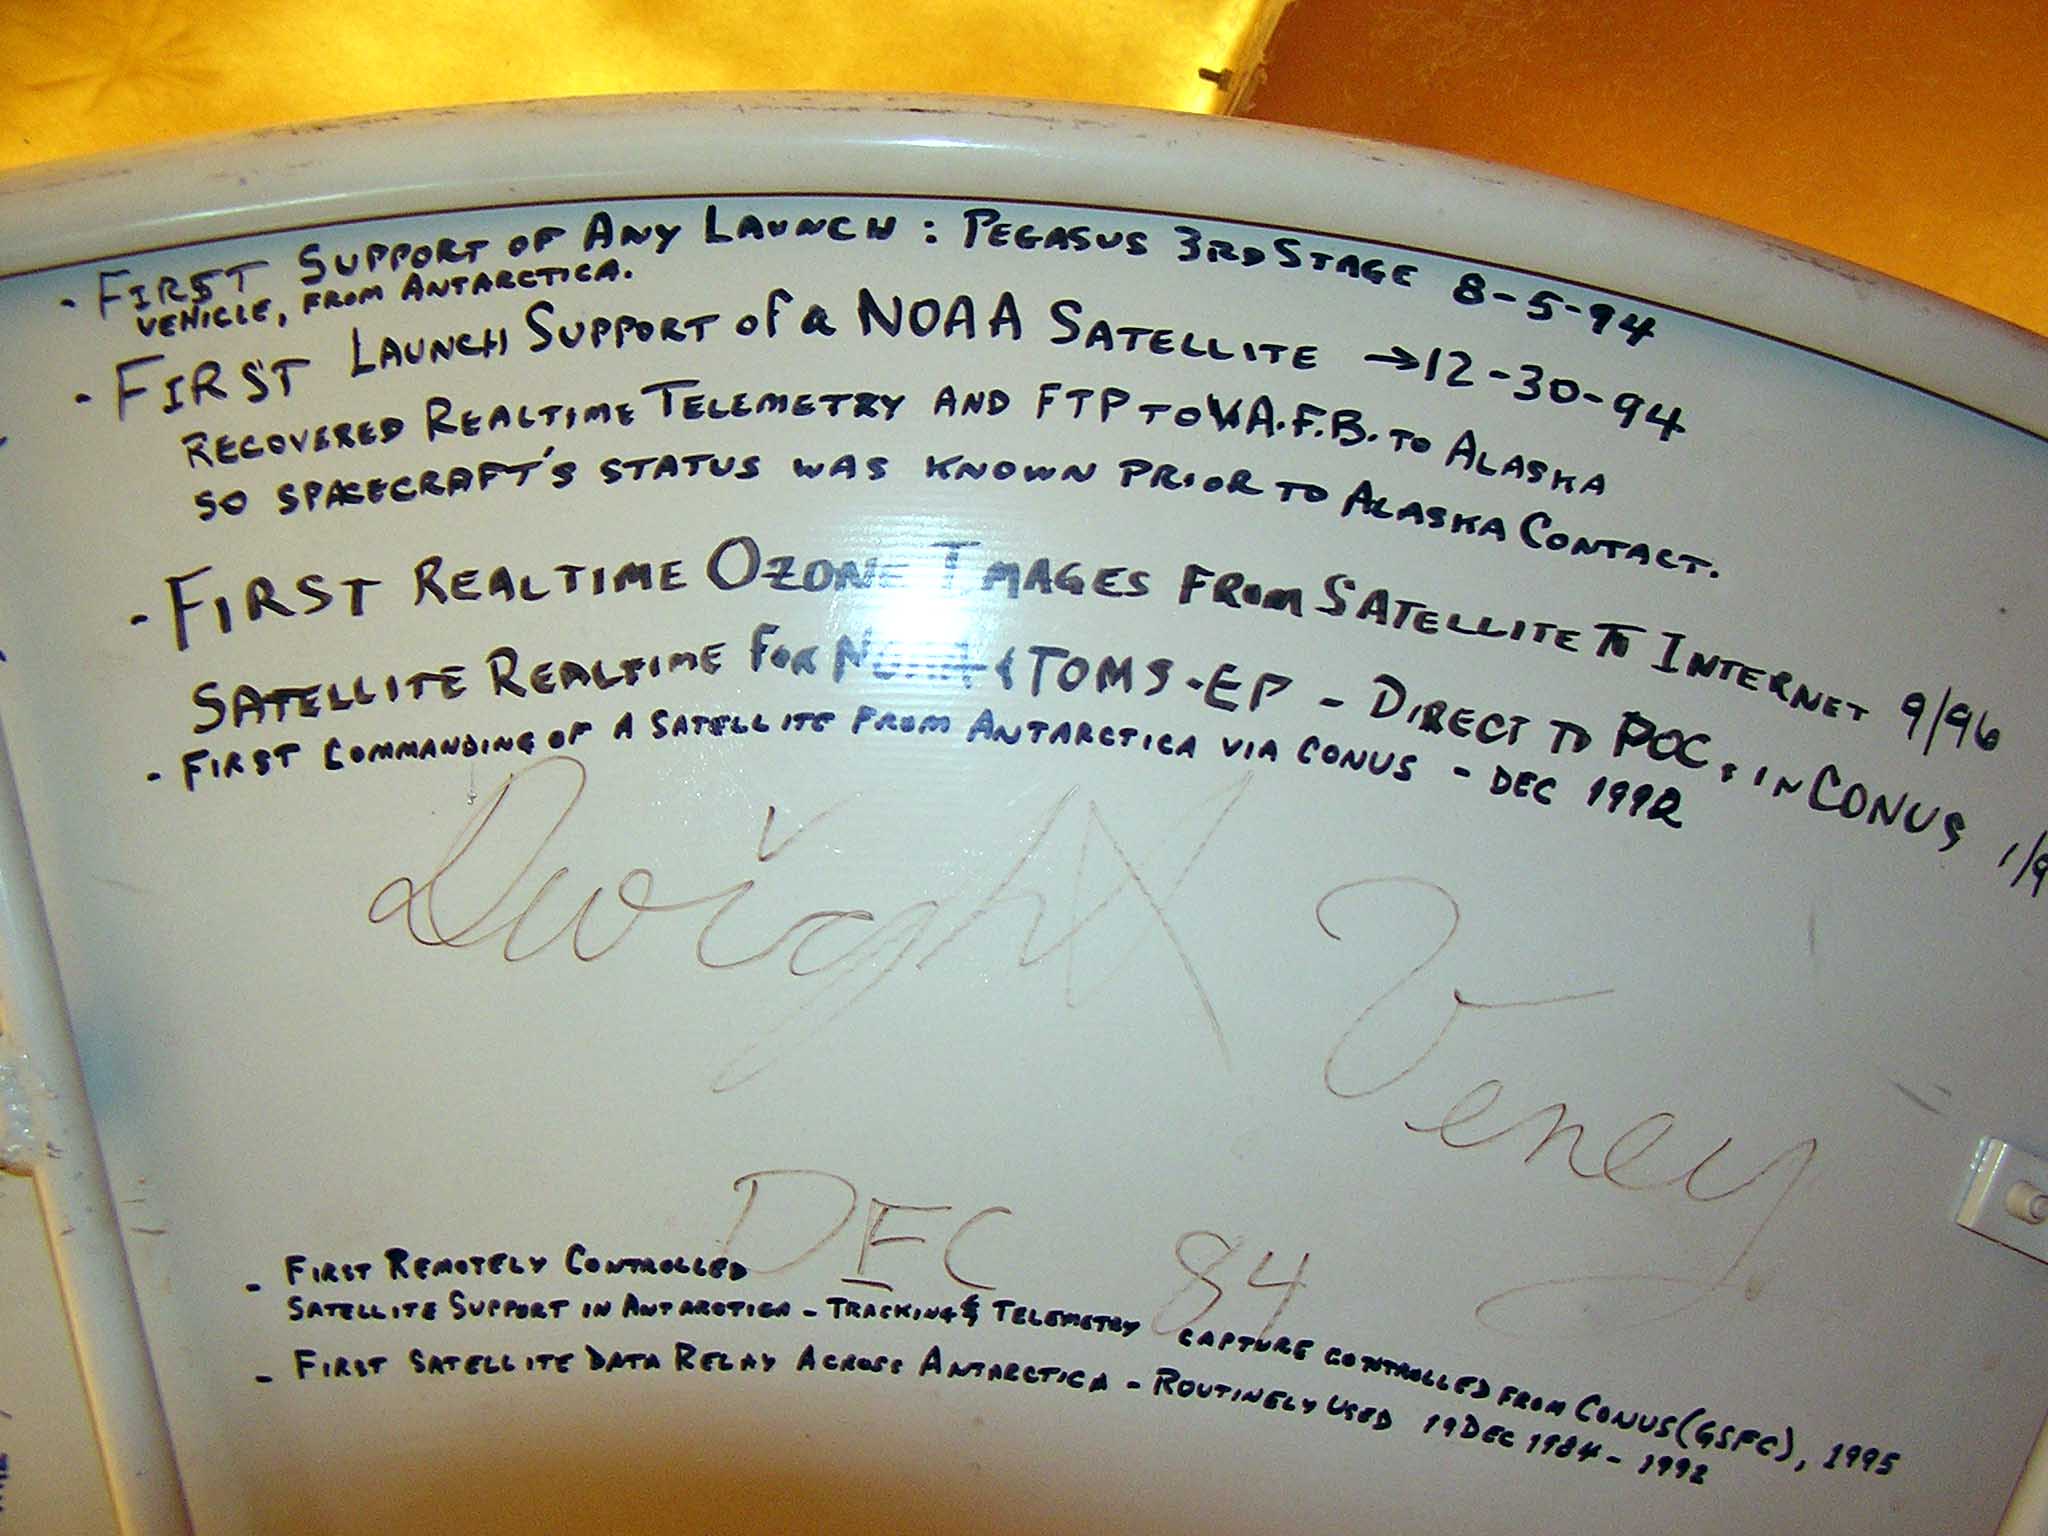 - FIRST SUPPORT OF ANY LAUNCH : PEGASUS 3RD STAGE 8-5-94
VEHICLE, FROM ANTARCTICA.
- FIRST LAUNCH SUPPORT OF A NOAA SATELLITE → 12-30-94
RECOVERED REALTIME TELEMETRY AND FTP TO V.A.F.B. TO ALASKA
SO SPACECRAFT'S STATUS WAS KNOWN PRIOR TO ALASKA CONTACT.
- FIRST REALTIME OZONE IMAGES FROM SATELLITE TO INTERNET 9/96
SATELLITE REALTIME FOR NOAA & TOMS-EP - DIRECT TO POCs IN CONUS
- FIRST COMMANDING OF A SATELLITE FROM ANTARCTICA VIA CONUS - DEC 1992
Dwight Veney
DEC 84
- FIRST REMOTELY CONTROLLED
SATELLITE SUPPORT IN ANTARCTICA - TRACKING & TELEMETRY CAPTURE CONTROLLED FROM CONUS (GSFC), 1995
- FIRST SATELLITE DATA RELAY ACROSS ANTARCTICA - ROUTINELY USED 19 DEC 1984 - 1992